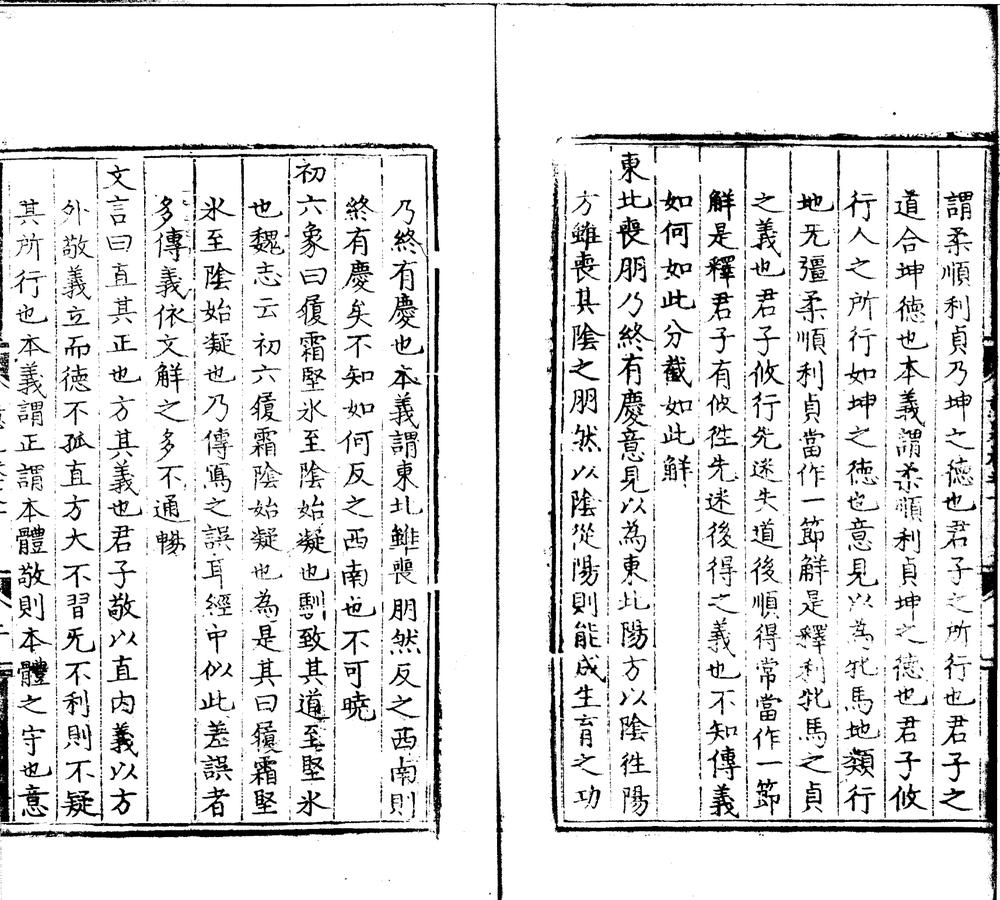 謂柔順利貞乃坤之德也君子之所行也君子之
道合坤德也本義謂柔順利貞坤之德也君子攸
行人之所行如坤之德也意見以為牝馬地類行
地旡彊柔順利貞當作一節解是釋利牝馬之貞
之義也君子攸行先迷失道後順得常當作一節
解是釋君子有攸徃先迷後得之義也不知傳義
如何如此分截如此解
東北喪朋乃終有慶意見以為東北陽方以陰徃陽
方雖喪其陰之朋然以陰從陽則能成生育之功
乃終有慶也本義謂東北雖喪朋然反之西南則
終有慶矣不知如何反之西南也不可曉
初六象曰履霜堅氷至陰始凝也馴致其道至堅氷
也魏志云初六履霜陰始凝也為是其曰履霜堅
氷至陰始凝也乃傳寫之誤耳經中似此差誤者
多傳義依文解之多不通暢
文言曰直其正也方其義也君子敬以直内義以方
外敬義立而德不孤直方大不習旡不利則不疑
其所行也本義謂正謂本體敬則本體之守也意